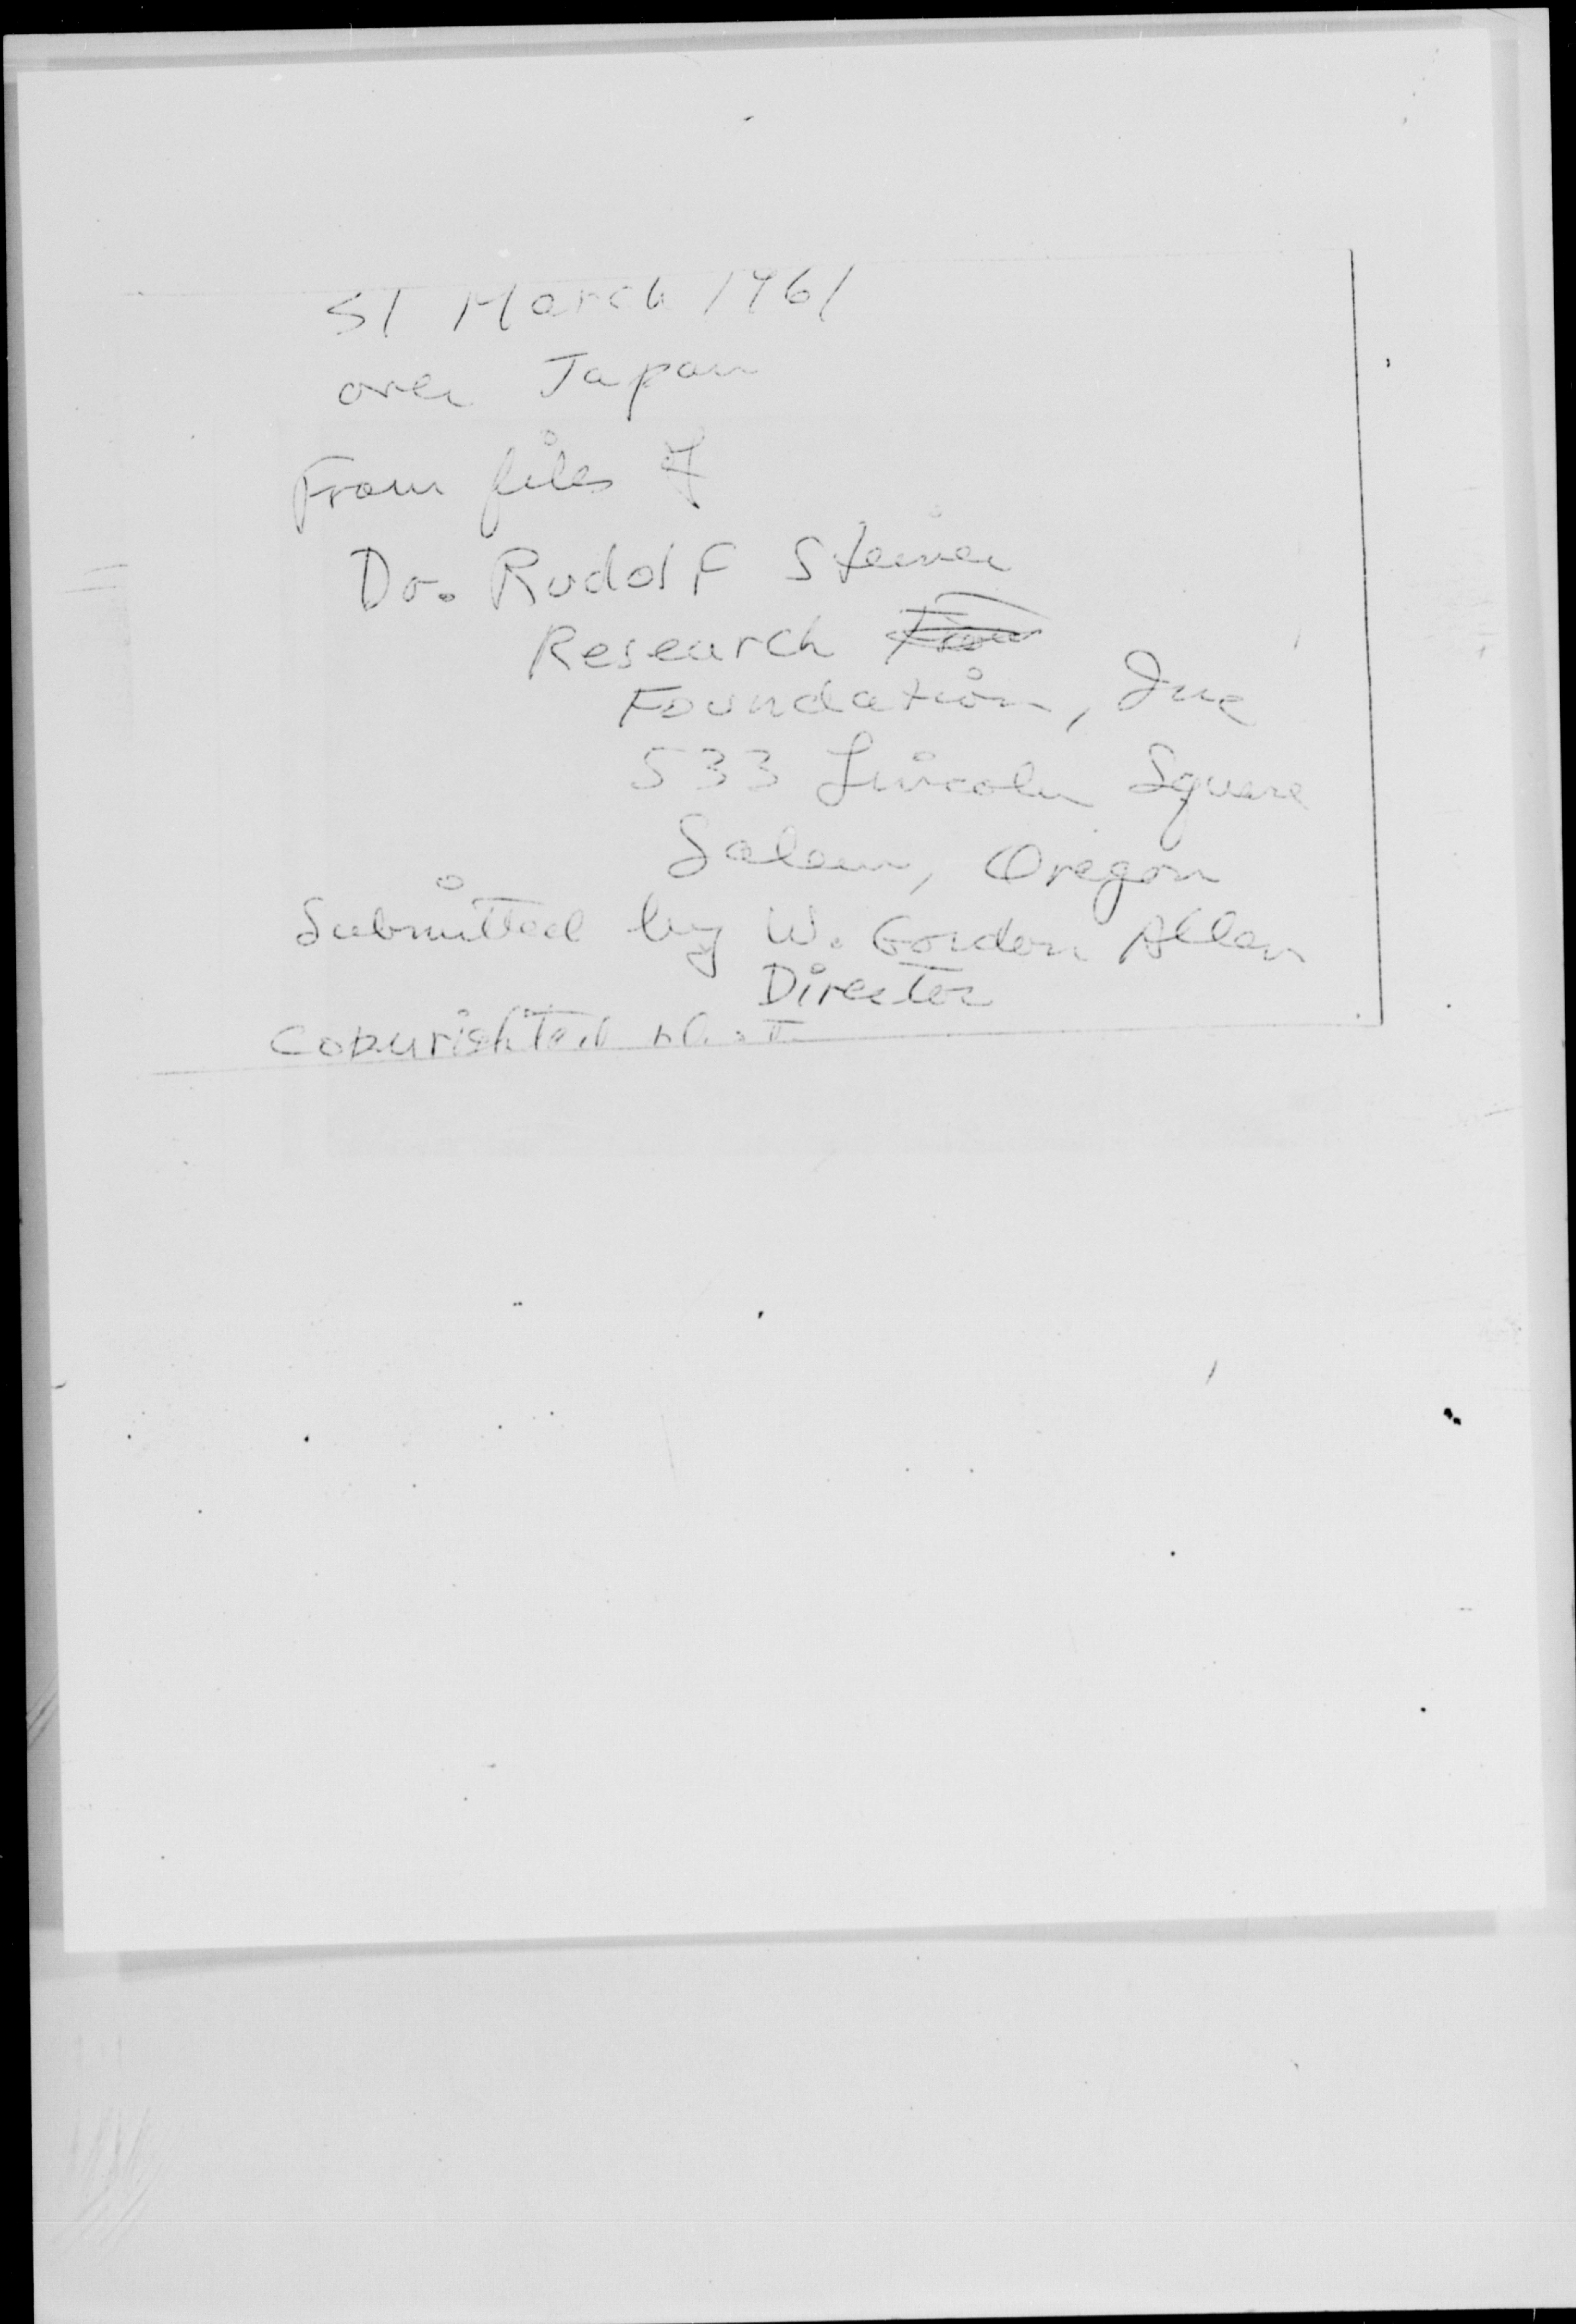 31 March 1961
over Japan
From files of
Dr. Rudolf Steiner
Research
Foundation, Inc
533 Lincoln Square
Salem, Oregon
Submitted by W. Gordon Allen
Director
Copyrighted photo